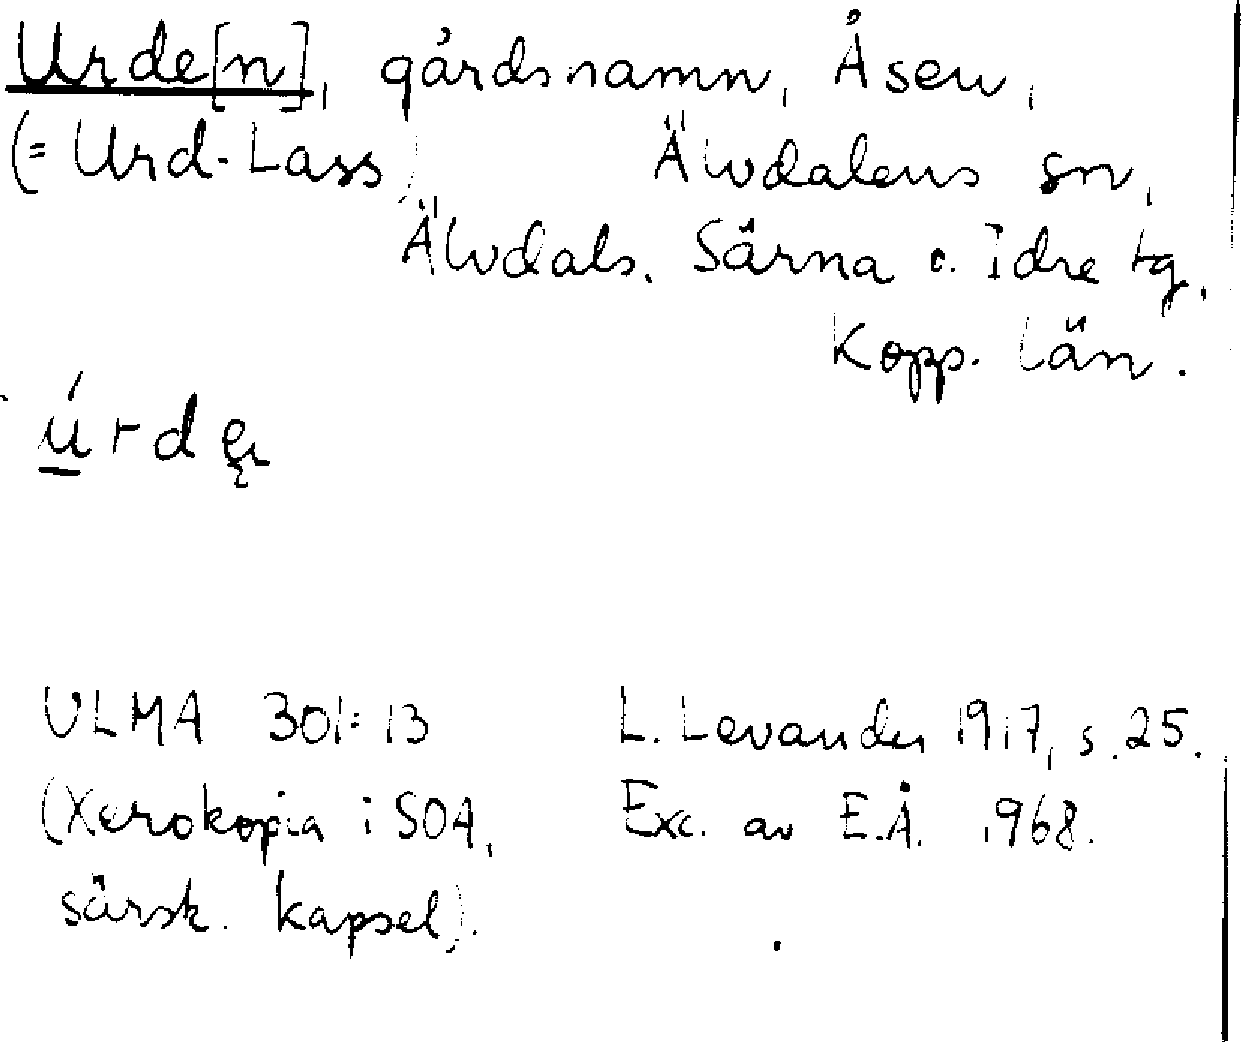 Urde[n], gårdsnamn, Åsen,
(= Urd-Lass) Älvdalens sn,
Älvdals, Särna o. Idre tg,
Kopp. län.
ú r d ę
ULMA 301:13 L. Levander 1917, s. 25.
(Xerokopia i SOA, Exc. av E.Å. 1968.
särsk. kapsel).